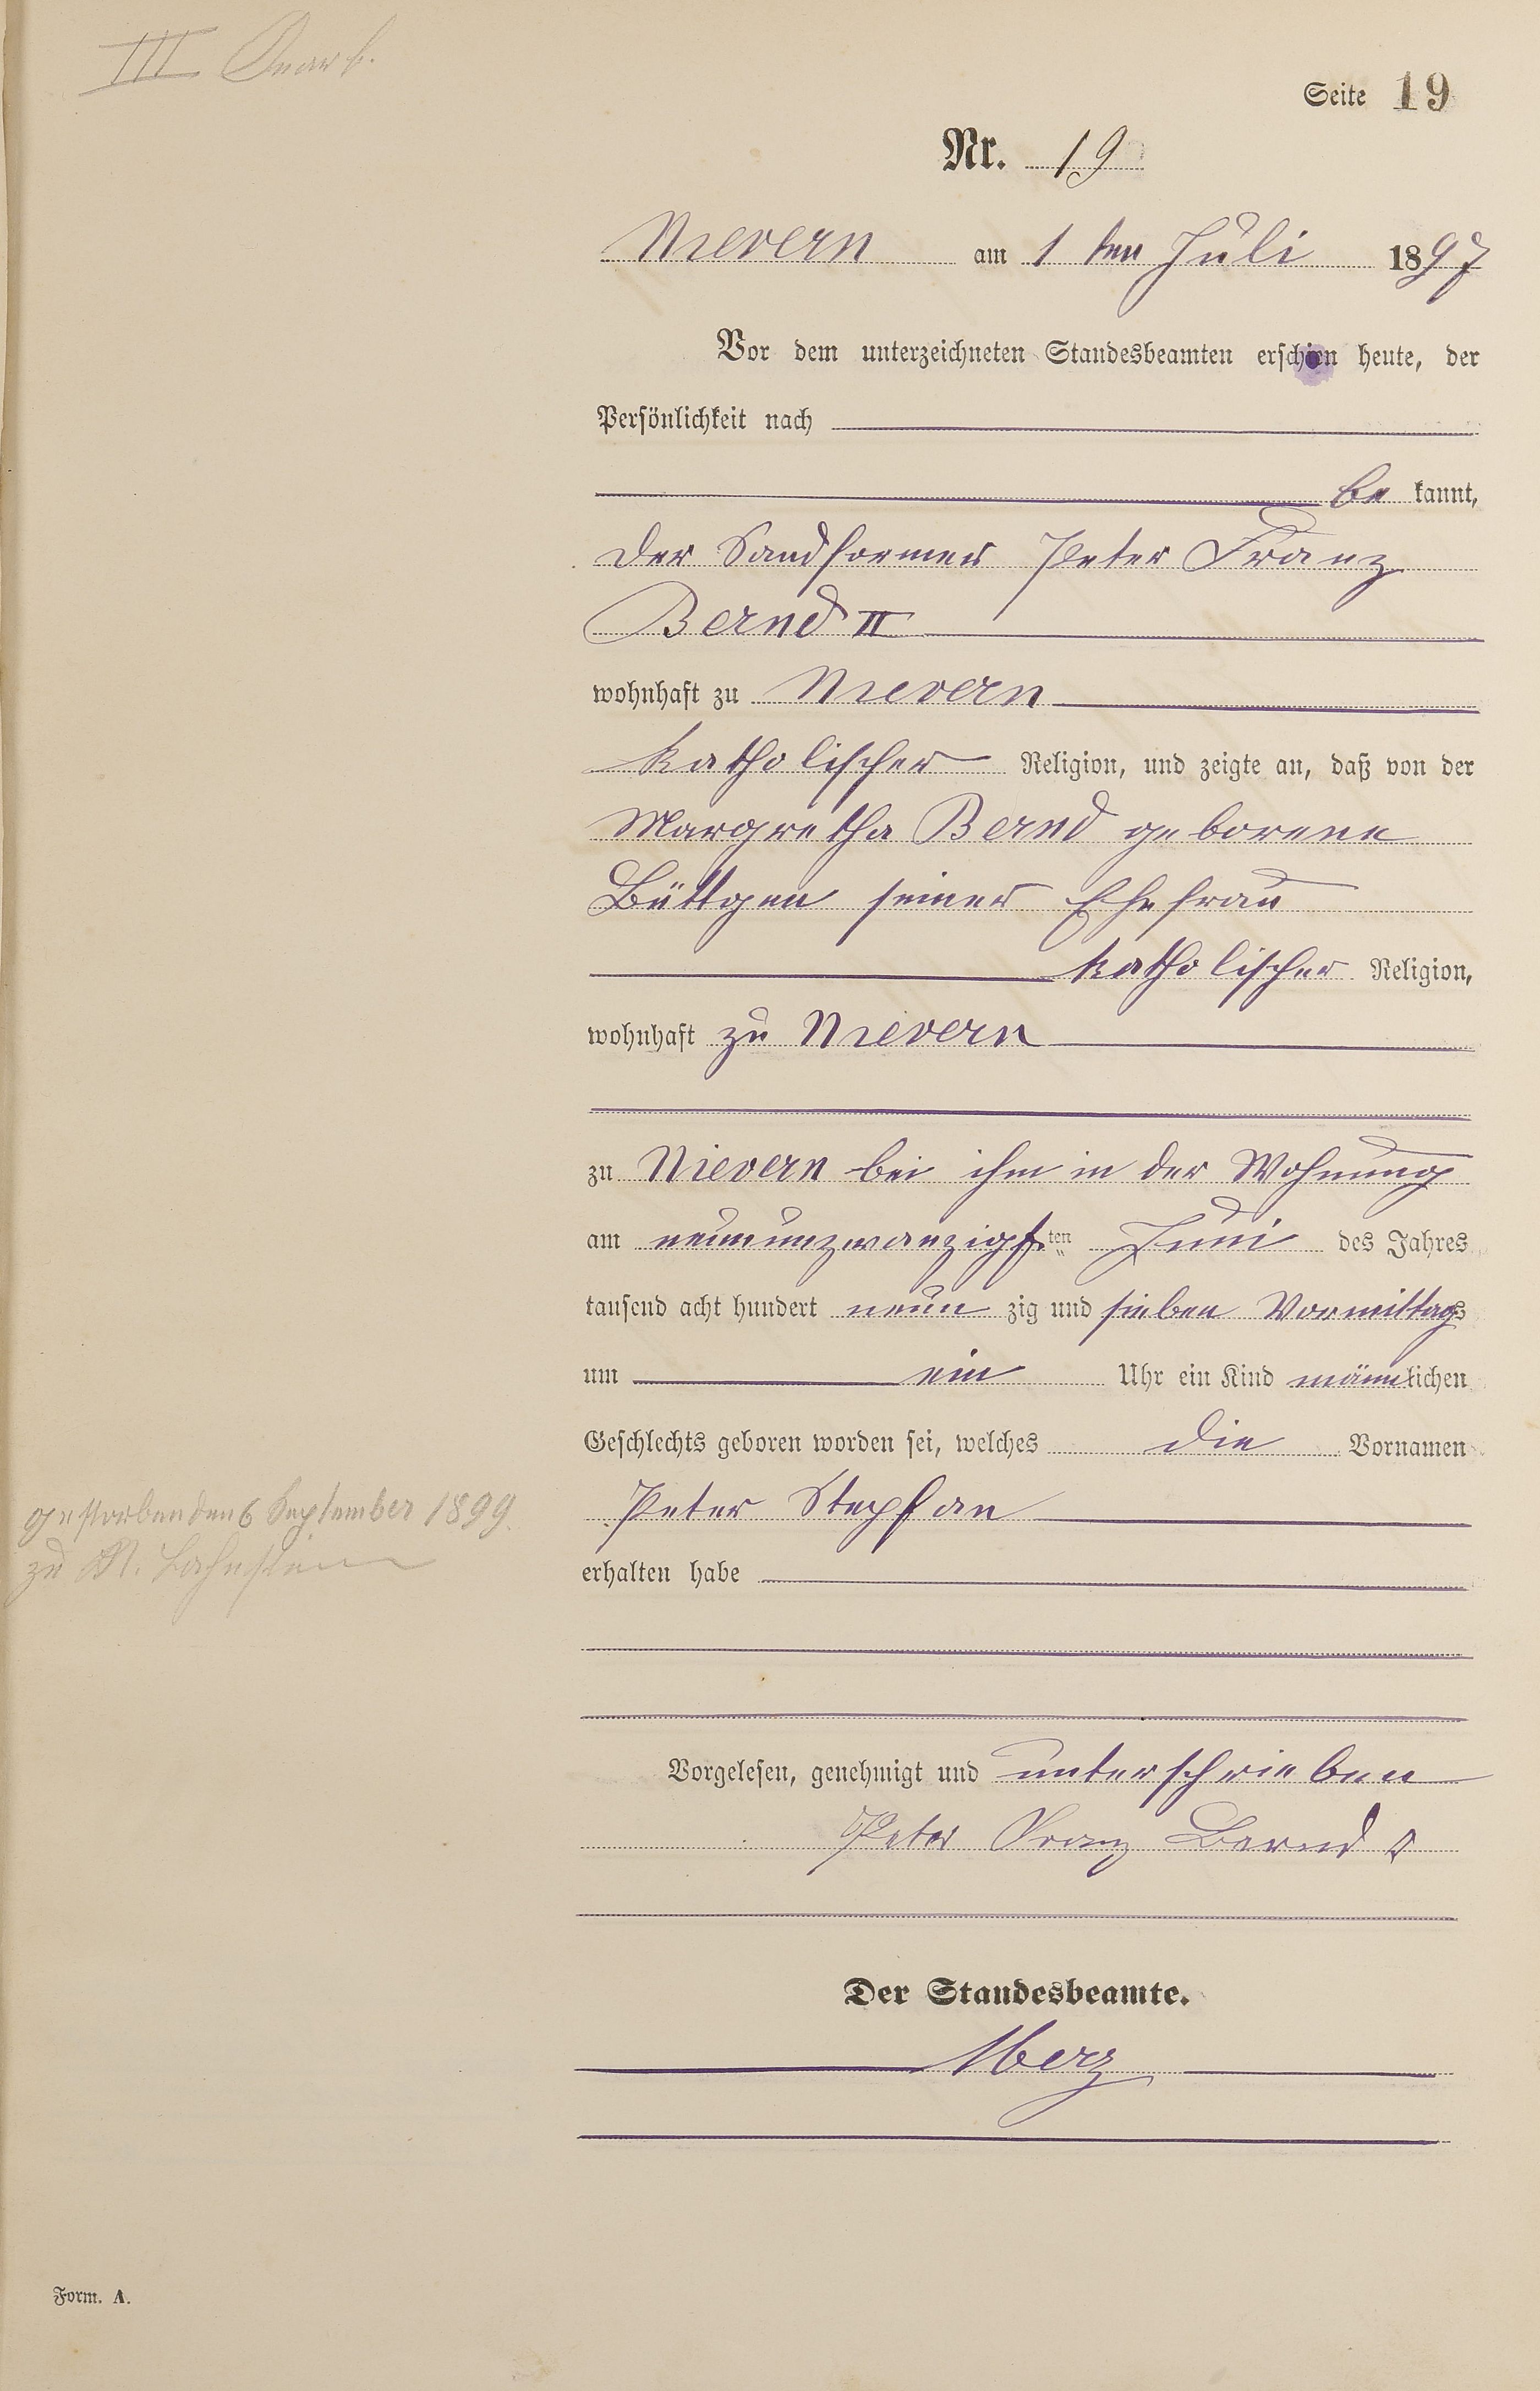 III Quart.
Seite 19
Nr. 19
Nievern am 1 ten Juli 1897
Vor dem unterzeichneten Standesbeamten erschien heute, der
Persönlichkeit nach
be kannt,
der Sandformer Peter Franz
Bernd II
wohnhaft zu Nievern
katholischer Religion, und zeigte an, daß von der
Margretha Bernd geborene
Büttgen seiner Ehefrau
katholischer Religion,
wohnhaft zu Nievern
zu Nievern bei ihm in der Wohnung
am neunundzwanzigsten Juni des Jahres
tausend acht hundert neun zig und sieben Vormittags
um ein Uhr ein Kind männlichen
Geschlechts geboren worden sei, welches die Vornamen
Peter Stephan
gestorben den 6 September 1899
zu N. Lahnstein
erhalten habe
Vorgelesen, genehmigt und unterschrieben
Peter Franz Bernd
Der Standesbeamte.
Merz
Form. A.